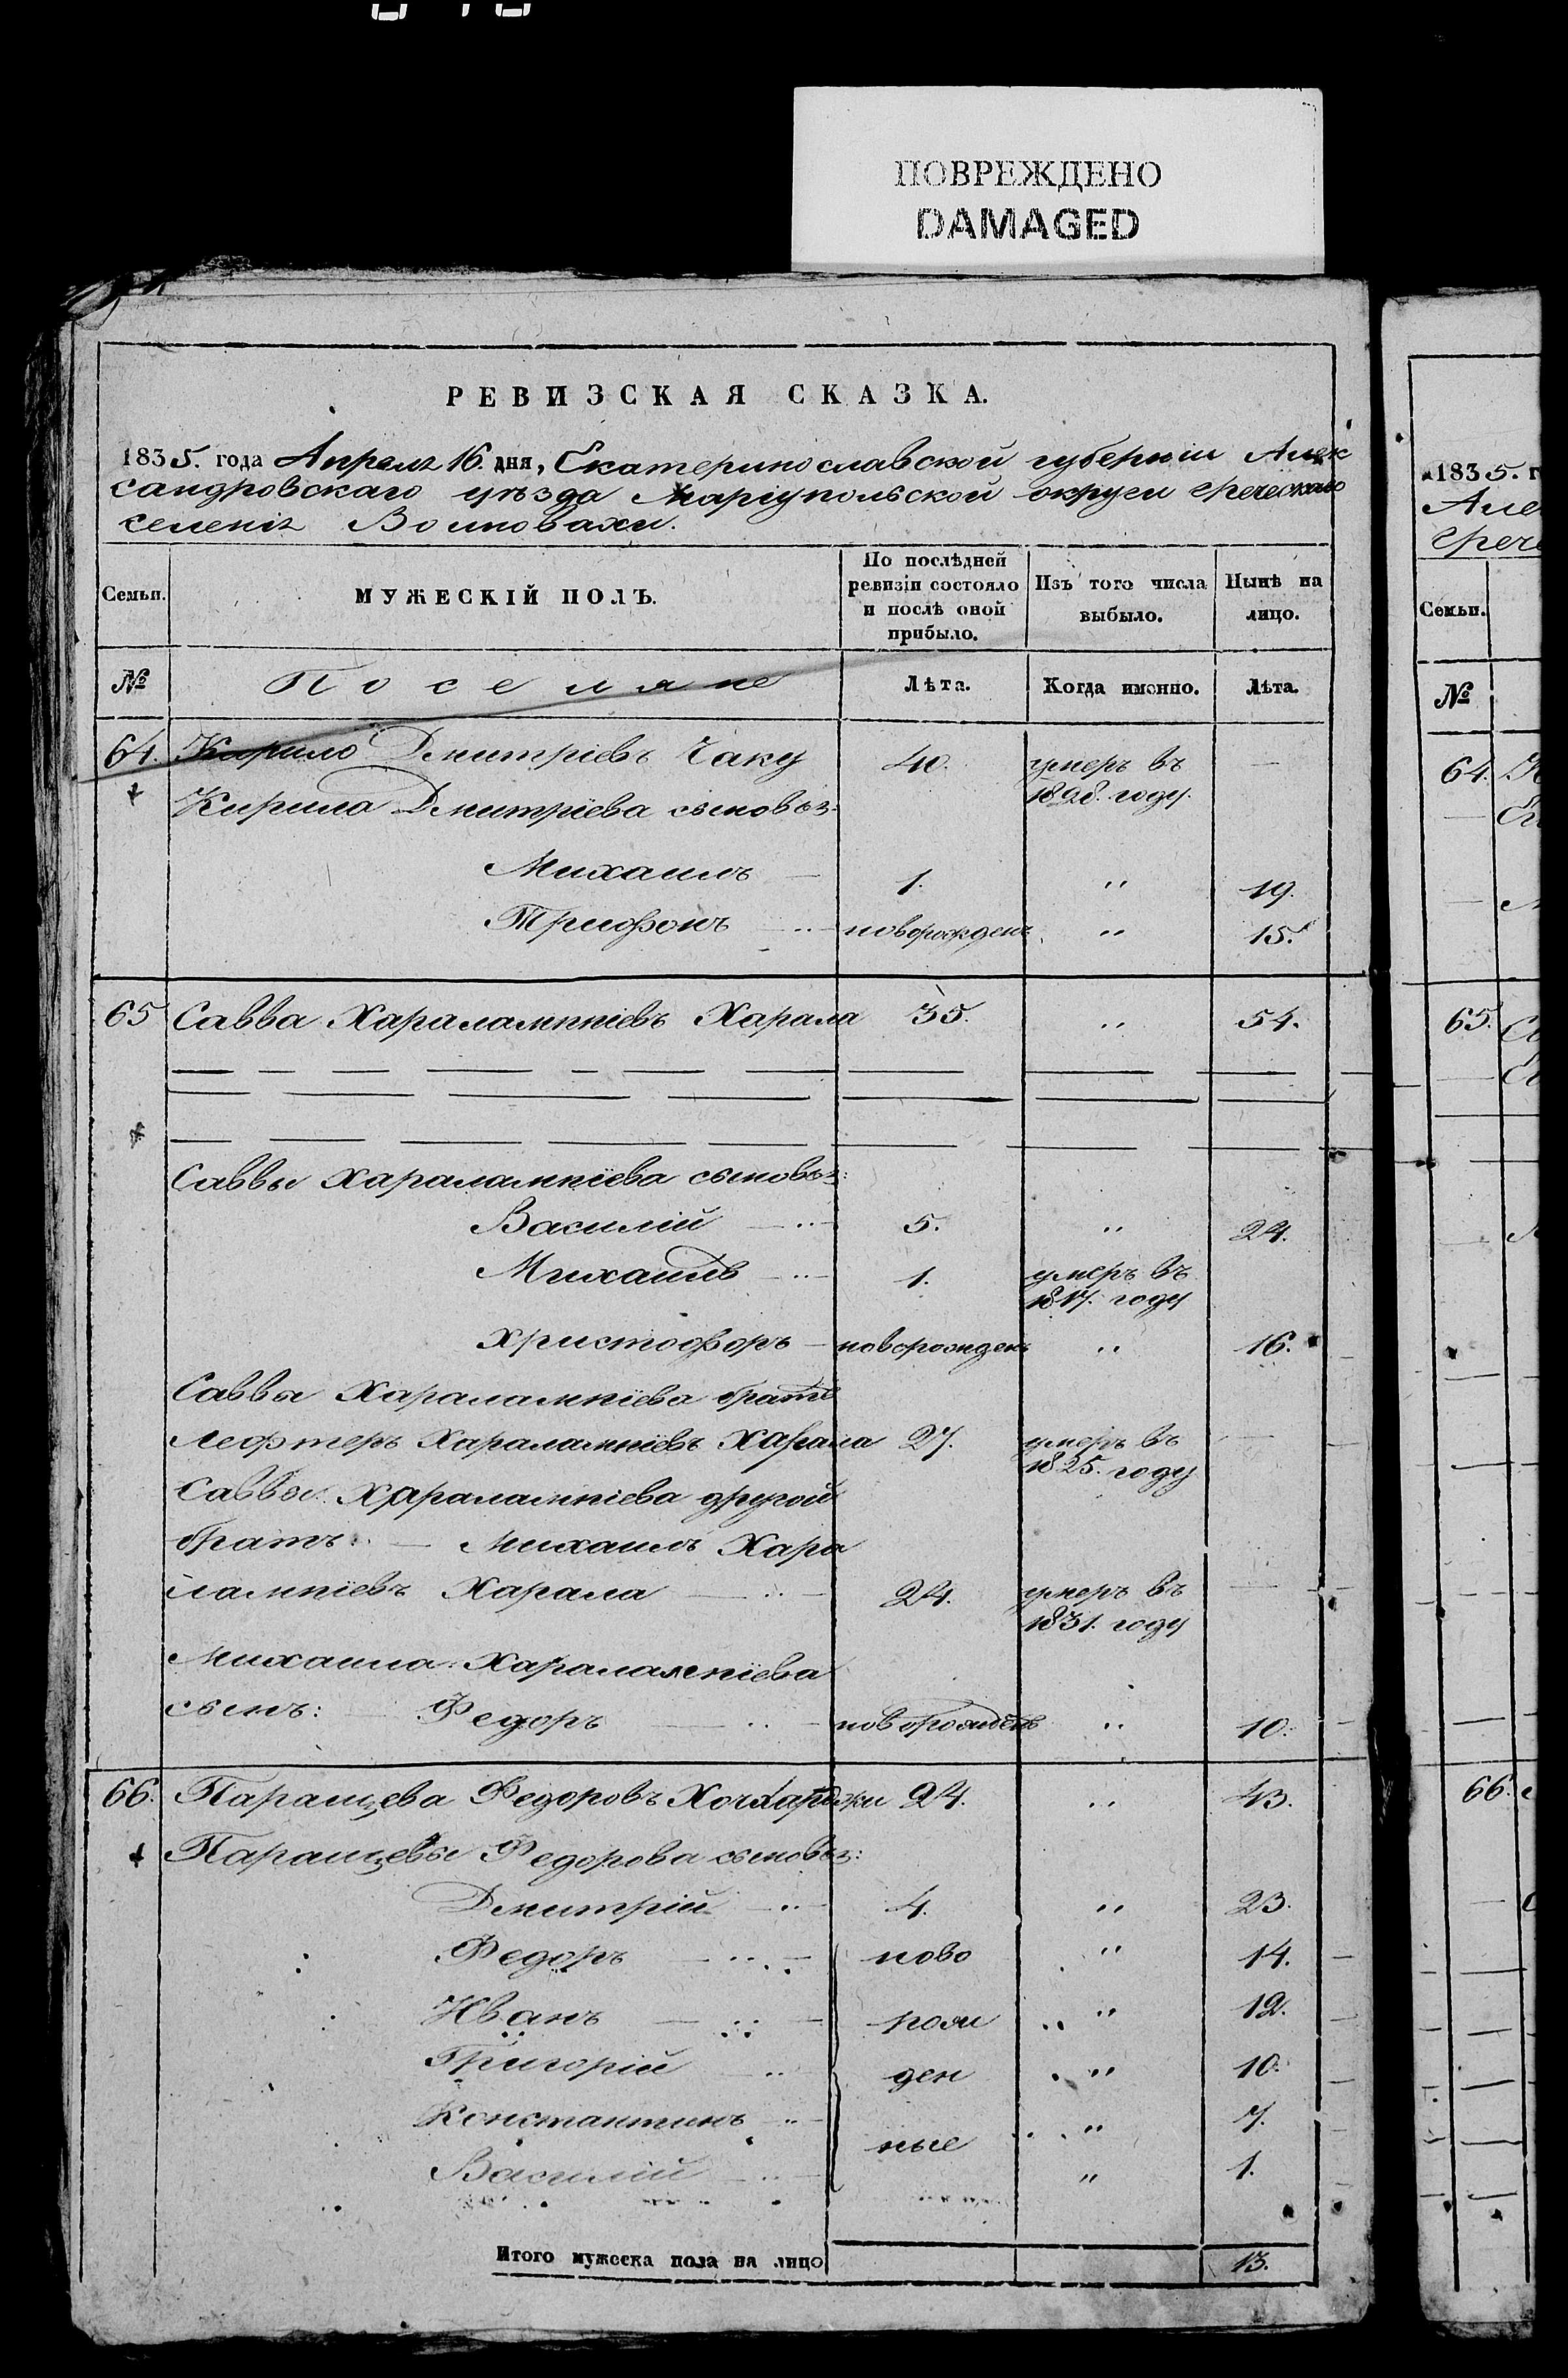 ПОВРЕЖДЕНО
DAMAGED
РЕВИЗСКАЯ СКАЗКА.
1835. года Апреля 16. дня, Екатеринославской губернии Алек
сандровскаго уѣзда Маріупольской округи греческаго
селенія Волновахи.
Семьи. МУЖЕСКІЙ ПОЛЪ. По послѣдней ревизіи состояло и послѣ оной прибыло. Изъ того числа выбыло. Нынѣ на лицо.
№ Поселяне Лѣта. Когда именно. Лѣта.
64. Кирило Дмитріевъ Чаку 40. умеръ въ —
1828. году.
Кирила Дмитріева сыновья:
Михаилъ — 1. " 19.
Трифонъ новорожденъ " 15.
65 Савва Харалампіевъ Харала 35. " 54.
Саввы Харалампіева сыновья:
Василій 5. " 24.
Михаилъ 1. умеръ въ
1817. году
Христофоръ — новорожденъ " 16.
Саввы Харалампіева братъ
Лефтеръ Харалампіевъ Харала 27. умеръ въ —
1825. году
Саввы Харалампіева другой
братъ: — Михаилъ Хара
лампіевъ Харала 24. умеръ въ —
1831. году
Михаила Харалампіева
сынъ: Федоръ новорожденъ " 10.
66. Паращева Федоровъ 24. " 43.
Паращевы Федорова сыновья:
Дмитрій 4. " 23.
Федоръ ново " 14.
Иванъ рож " 12.
Григорій ден " 10.
Константинъ ные " 7.
Василій " 1.
Итого мужеска пола на лицо 13.
1835. г
Алек
грече
Семьи.
№
64.
65.
66.